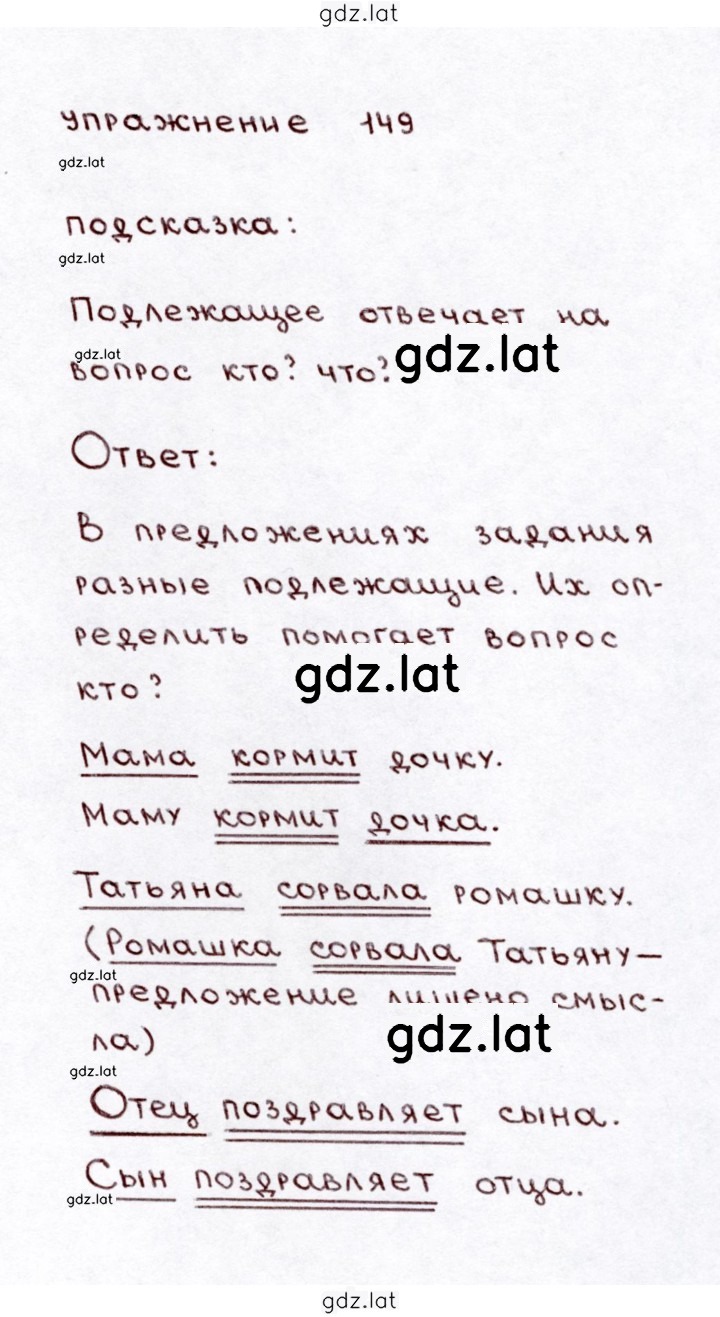 gdz.lat
упражнение 149
gdz.lat
подсказка:
gdz.lat
Подлежащее отвечает на
gdz.lat
вопрос кто? что?
gdz.lat
Ответ:
В предложениях задания
разные подлежащие. Их оп-
ределить помогает вопрос
gdz.lat
кто?
Мама кормит дочку.
Маму кормит дочка.
Татьяна сорвала ромашку.
(Ромашка сорвала Татьяну-
gdz.lat
предложение лишено смыс-
gdz.lat
ла)
gdz.lat
Отец поздравляет сына.
Сын поздравляет отца.
gdz.lat
gdz.lat